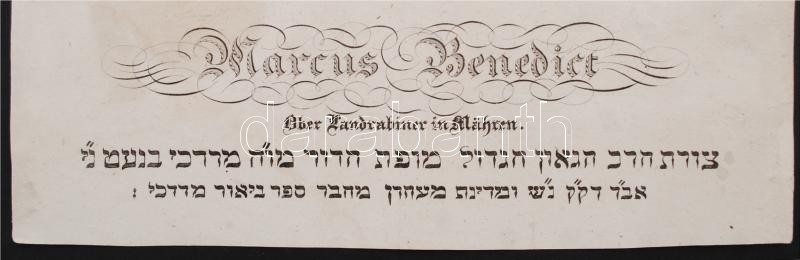 Marcus Benedict
Ober Landrabiner in Mähren.
darabanth
צורת הרב הגאון הגדול מופת הדור מו״ה מרדכי בנעט נ״י
אב״ד דק״ק נ״ש ומדינת מעהרן מחבר ספר ביאור מרדכי :